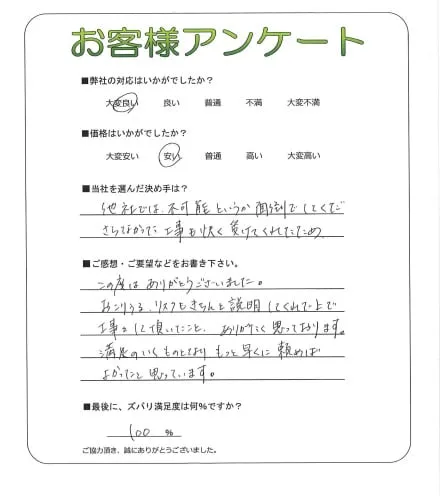 お客様アンケート
■弊社の対応はいかがでしたか？
大変良い 良い 普通 不満 大変不満
■価格はいかがでしたか？
大変安い 安い 普通 高い 大変高い
■当社を選んだ決め手は？
他社では、不可能というか面倒でしてくだ
さらなかった工事も快く負けてくれたため
■ご感想・ご要望などをお書き下さい。
この度はありがとうございました。
おこりうる、リスクもきちんと説明してくれた上で
工事をして頂いたこと、ありがたく思っております。
満足のいくものとなり もっと早くに頼めば
よかったと思っています。
■最後に、ズバリ満足度は何%ですか？
100 %
ご協力頂き、誠にありがとうございました。